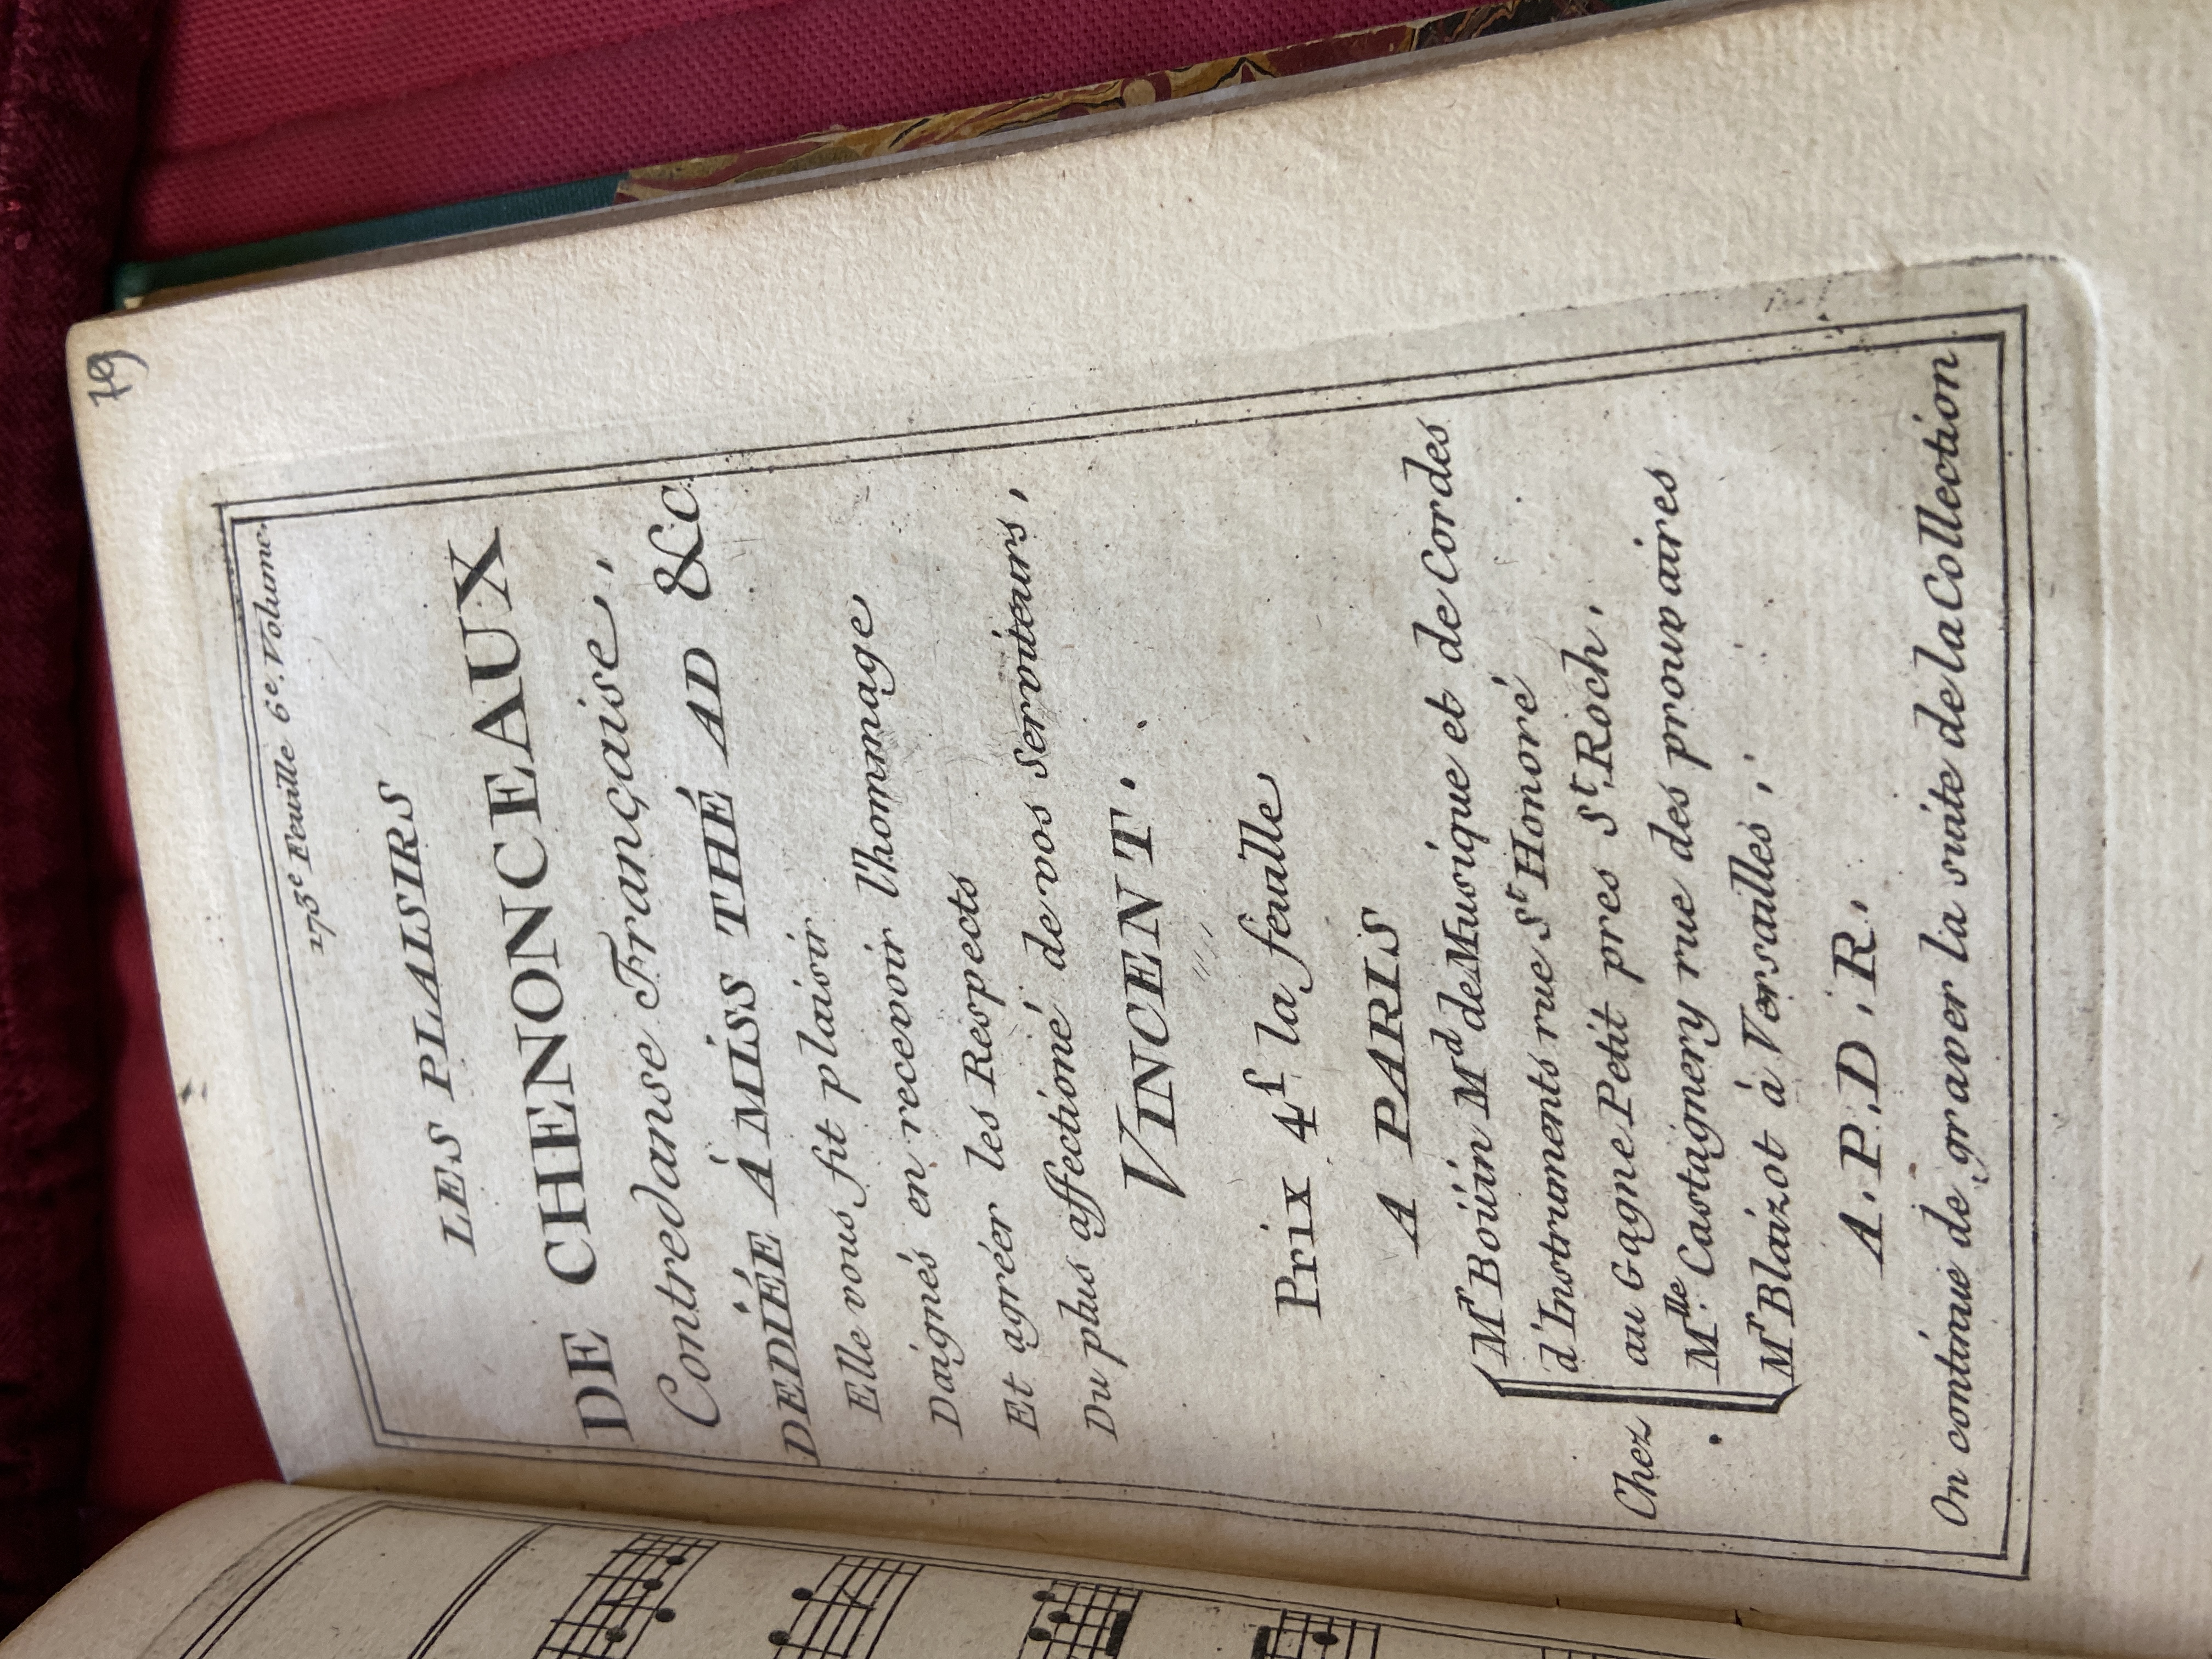 79
173e Feuille 6e. Volume.
LES PLAISIRS
DE CHENONCEAUX
Contredanse Française,
DEDIÉE Á MISS THÉ AD &c.
Elle vous fit plaisir
Daignés en recevoir l'hommage
Et agréer les Respects
Du plus affectioné de vos serviteurs,
VINCENT.
Prix 4f la feuille
A PARIS
Mr Boüin Md de Musique et de Cordes
d'Instruments rue St Honoré
au Gagne Petit pres St. Roch,
Chez Mlle. Castagnery rue des prouvaires
Mr Blaizot à Versailles,
A.P.D.R.
On continue de graver la suite de la Collection